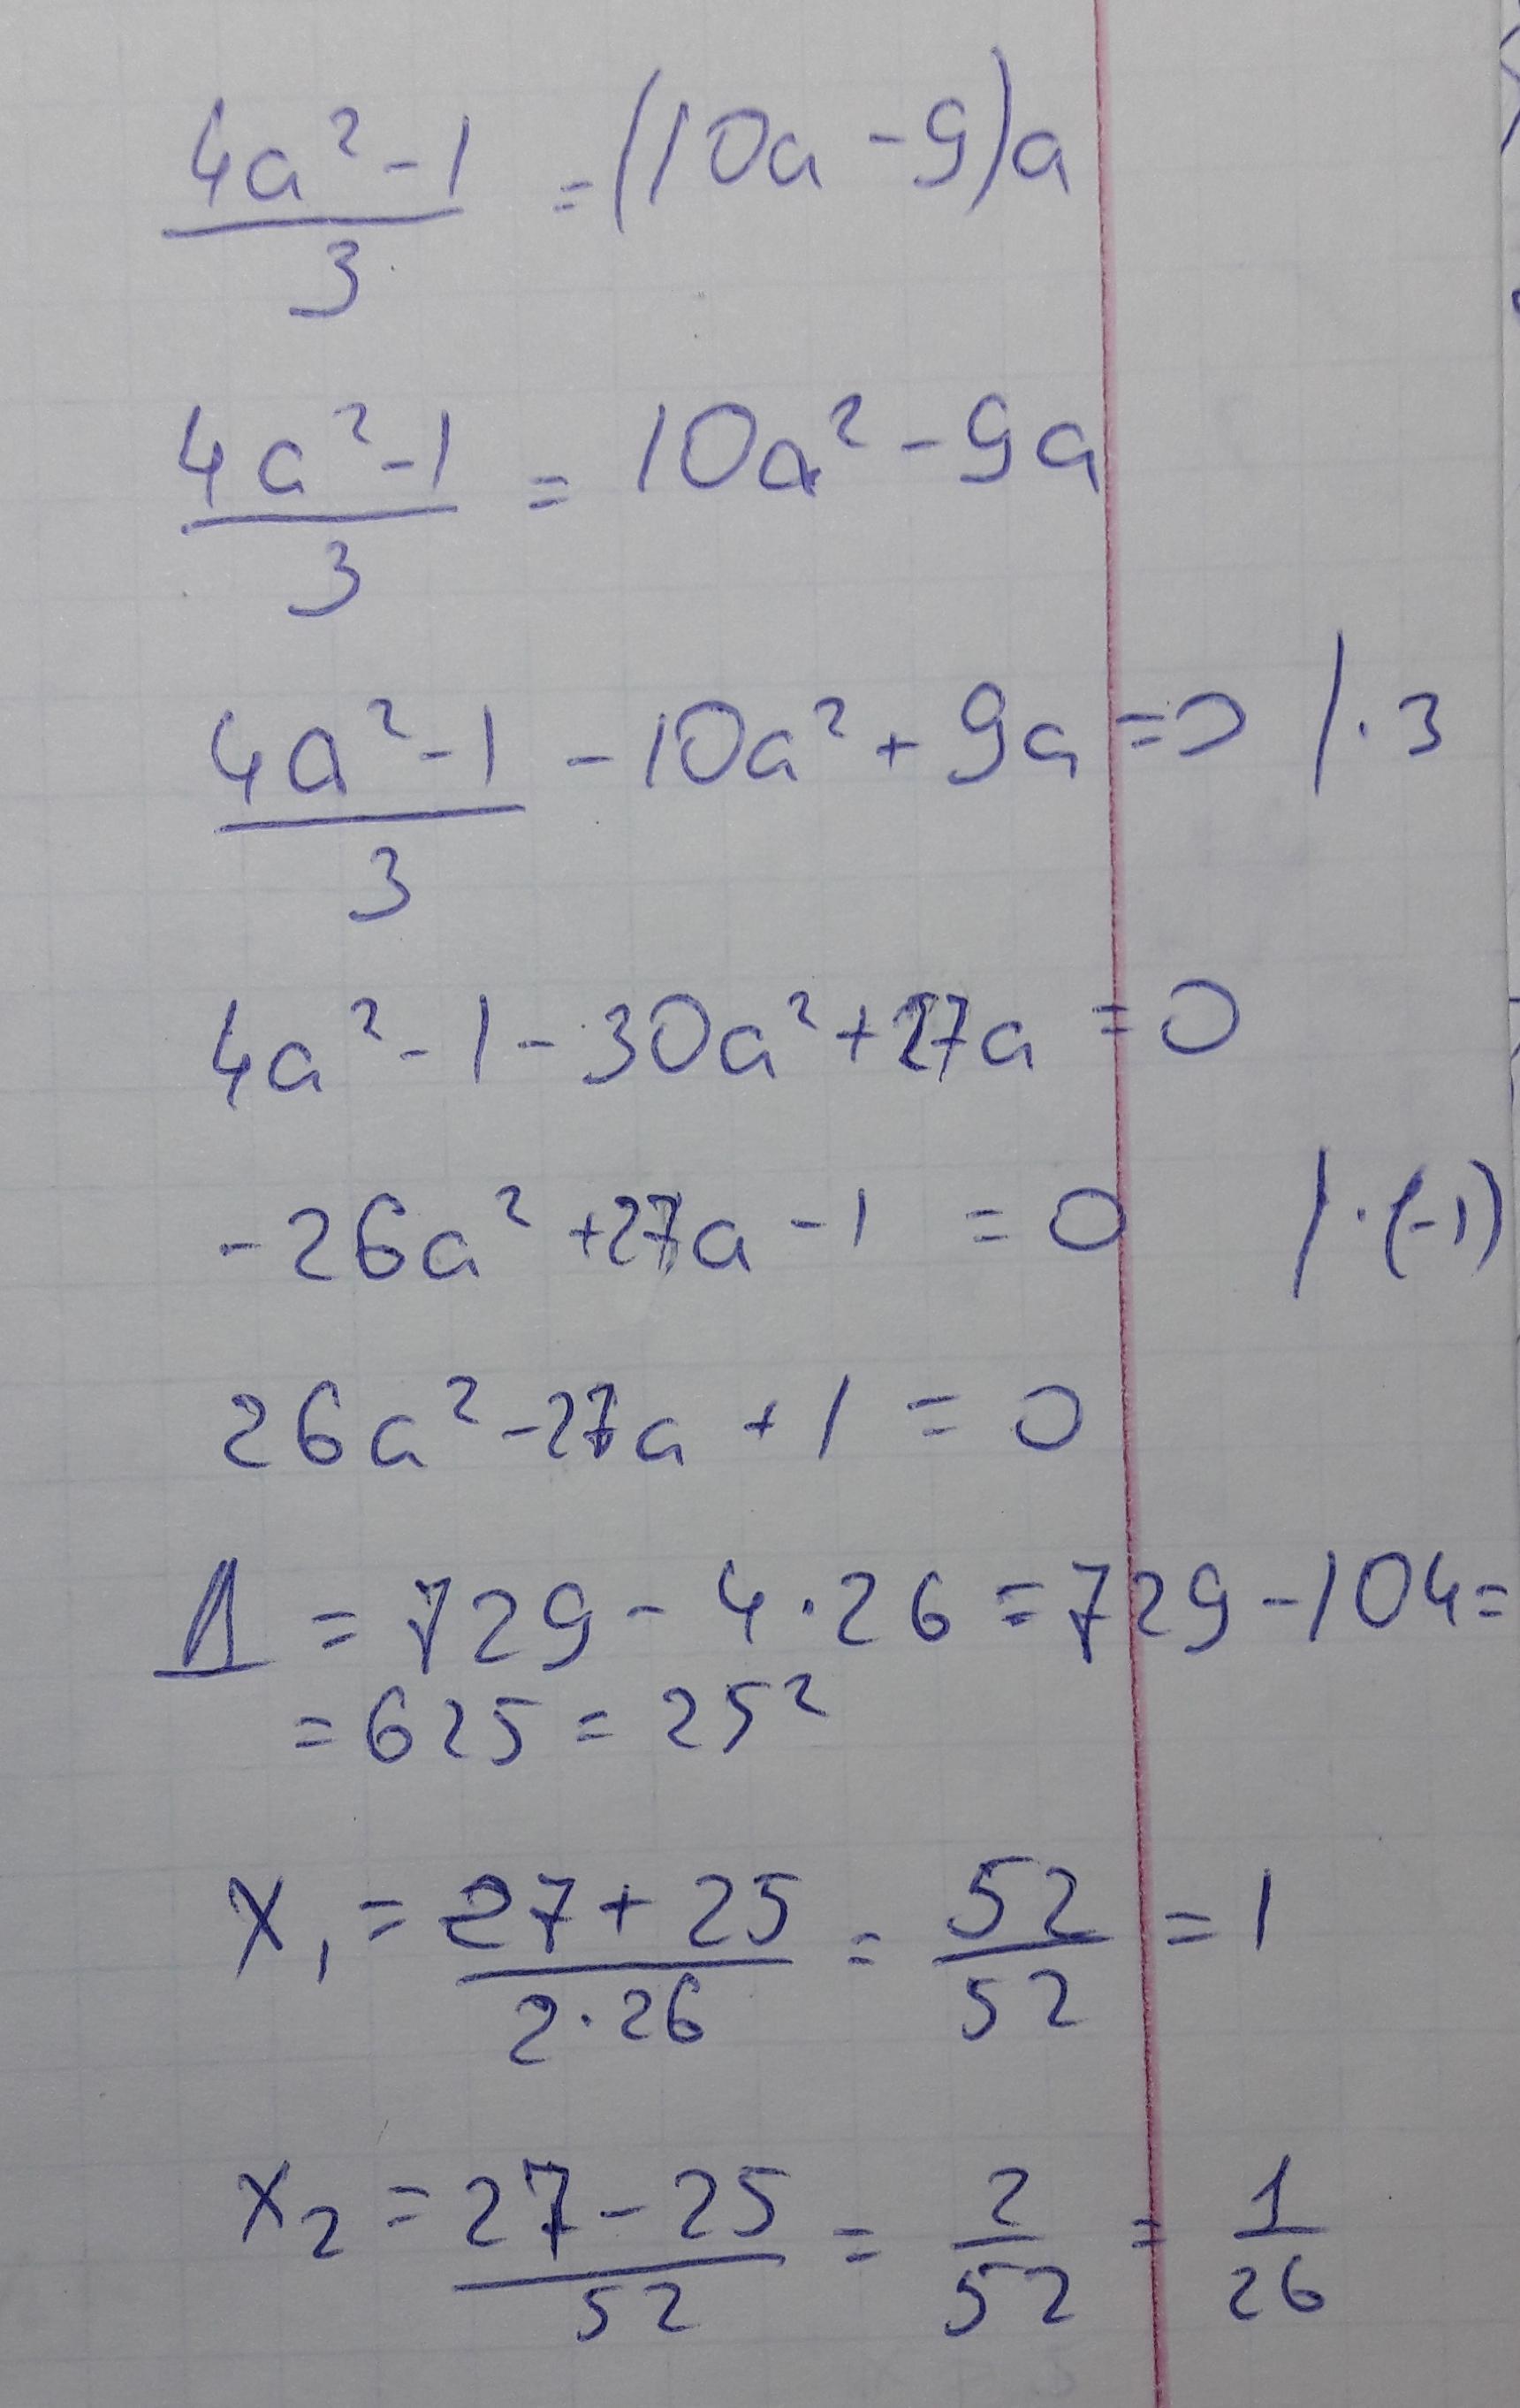 (4a² - 1)/3 = (10a - 9)a
(4a² - 1)/3 = 10a² - 9a
(4a² - 1)/3 - 10a² + 9a = 0 / · 3
4a² - 1 - 30a² + 27a = 0
-26a² + 27a - 1 = 0 / · (-1)
26a² - 27a + 1 = 0
Д = 729 - 4 · 26 = 729 - 104 =
= 625 = 25²
x₁ = (27 + 25)/(2 · 26) = 52/52 = 1
x₂ = (27 - 25)/52 = 2/52 = 1/26